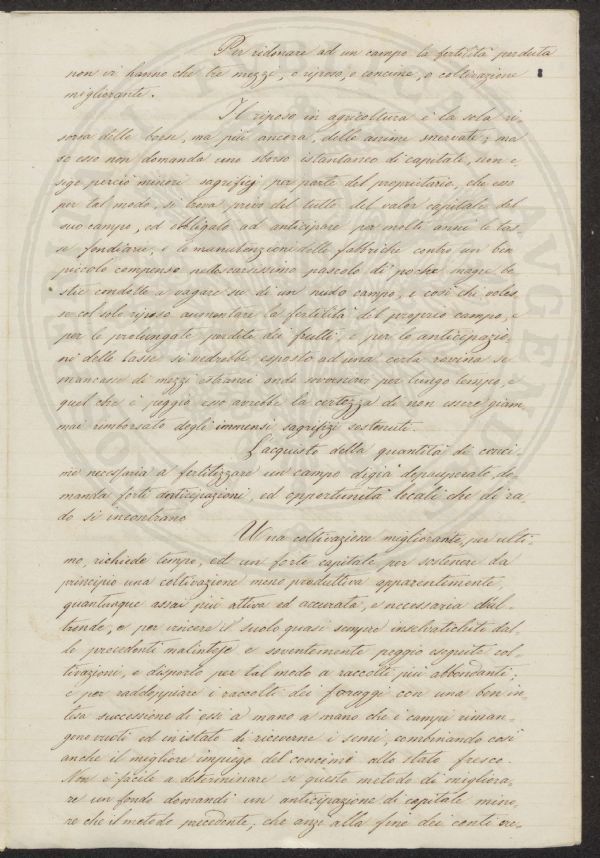 Per ridonare ad un campo la fertilità perduta
non vi hanno che tre mezzi, o riposo, o concime, o coltivazione
migliorante.
Il riposo in agricoltura è la sola ri¬
sorsa delle borse, ma più ancora, delle anime snervate; ma
se esso non domanda uno sborso istantaneo di capitale, non e¬
sige perciò minori sagrifizj per parte del proprietario, che esso
per tal modo, si trova privo del tutto del valor capitale del
suo campo, ed obbligato ad anticipare per molti anni le tas¬
se fondiarie, e le manutenzioni delle fabbriche contro un ben
piccolo compenso nello scarsissimo pascolo di poche magre be¬
stie condotte a vagare su di un nudo campo, e così chi voles¬
se col solo riposo aumentare la fertilità del proprio campo, e
per le prolungate perdite dei frutti, e per le anticipazio¬
ni delle tasse si vedrebbe esposto ad una certa rovina se
mancasse di mezzi estranei onde sovvenire per lungo tempo, e
quel che è peggio esso avrebbe la certezza di non essere giam¬
mai rimborsato degli immensi sagrifizj sostenuti.
L'acquisto della quantità di conci¬
me necessaria a fertilizzare un campo digià depauperato, do¬
manda forti anticipazioni ed opportunità locali che di ra¬
do si incontrano
Una coltivazione migliorante, per ulti¬
mo, richiede tempo, ed un forte capitale per sostenere da
principio una coltivazione meno produttiva apparentemente,
quantunque assai più attiva ed accurata, e necessaria d'al¬
tronde, e per vincere il suolo quasi sempre inselvatichito dal¬
le precedenti malintese e soventemente peggio eseguite col¬
tivazioni, e disporlo per tal modo a raccolti più abbondanti;
e per raddoppiare i raccolti dei foraggi con una ben in¬
tesa successione di essi a mano a mano che i campi riman¬
gono vuoti ed in istato di riceverne i semi, combinando così
anche il migliore impiego del concime allo stato fresco.
Non è facile a determinare se questo metodo di migliora¬
re un fondo domandi un anticipazione di capitale mino¬
re che il metodo precedente, che anzi alla fine dei conti cre¬